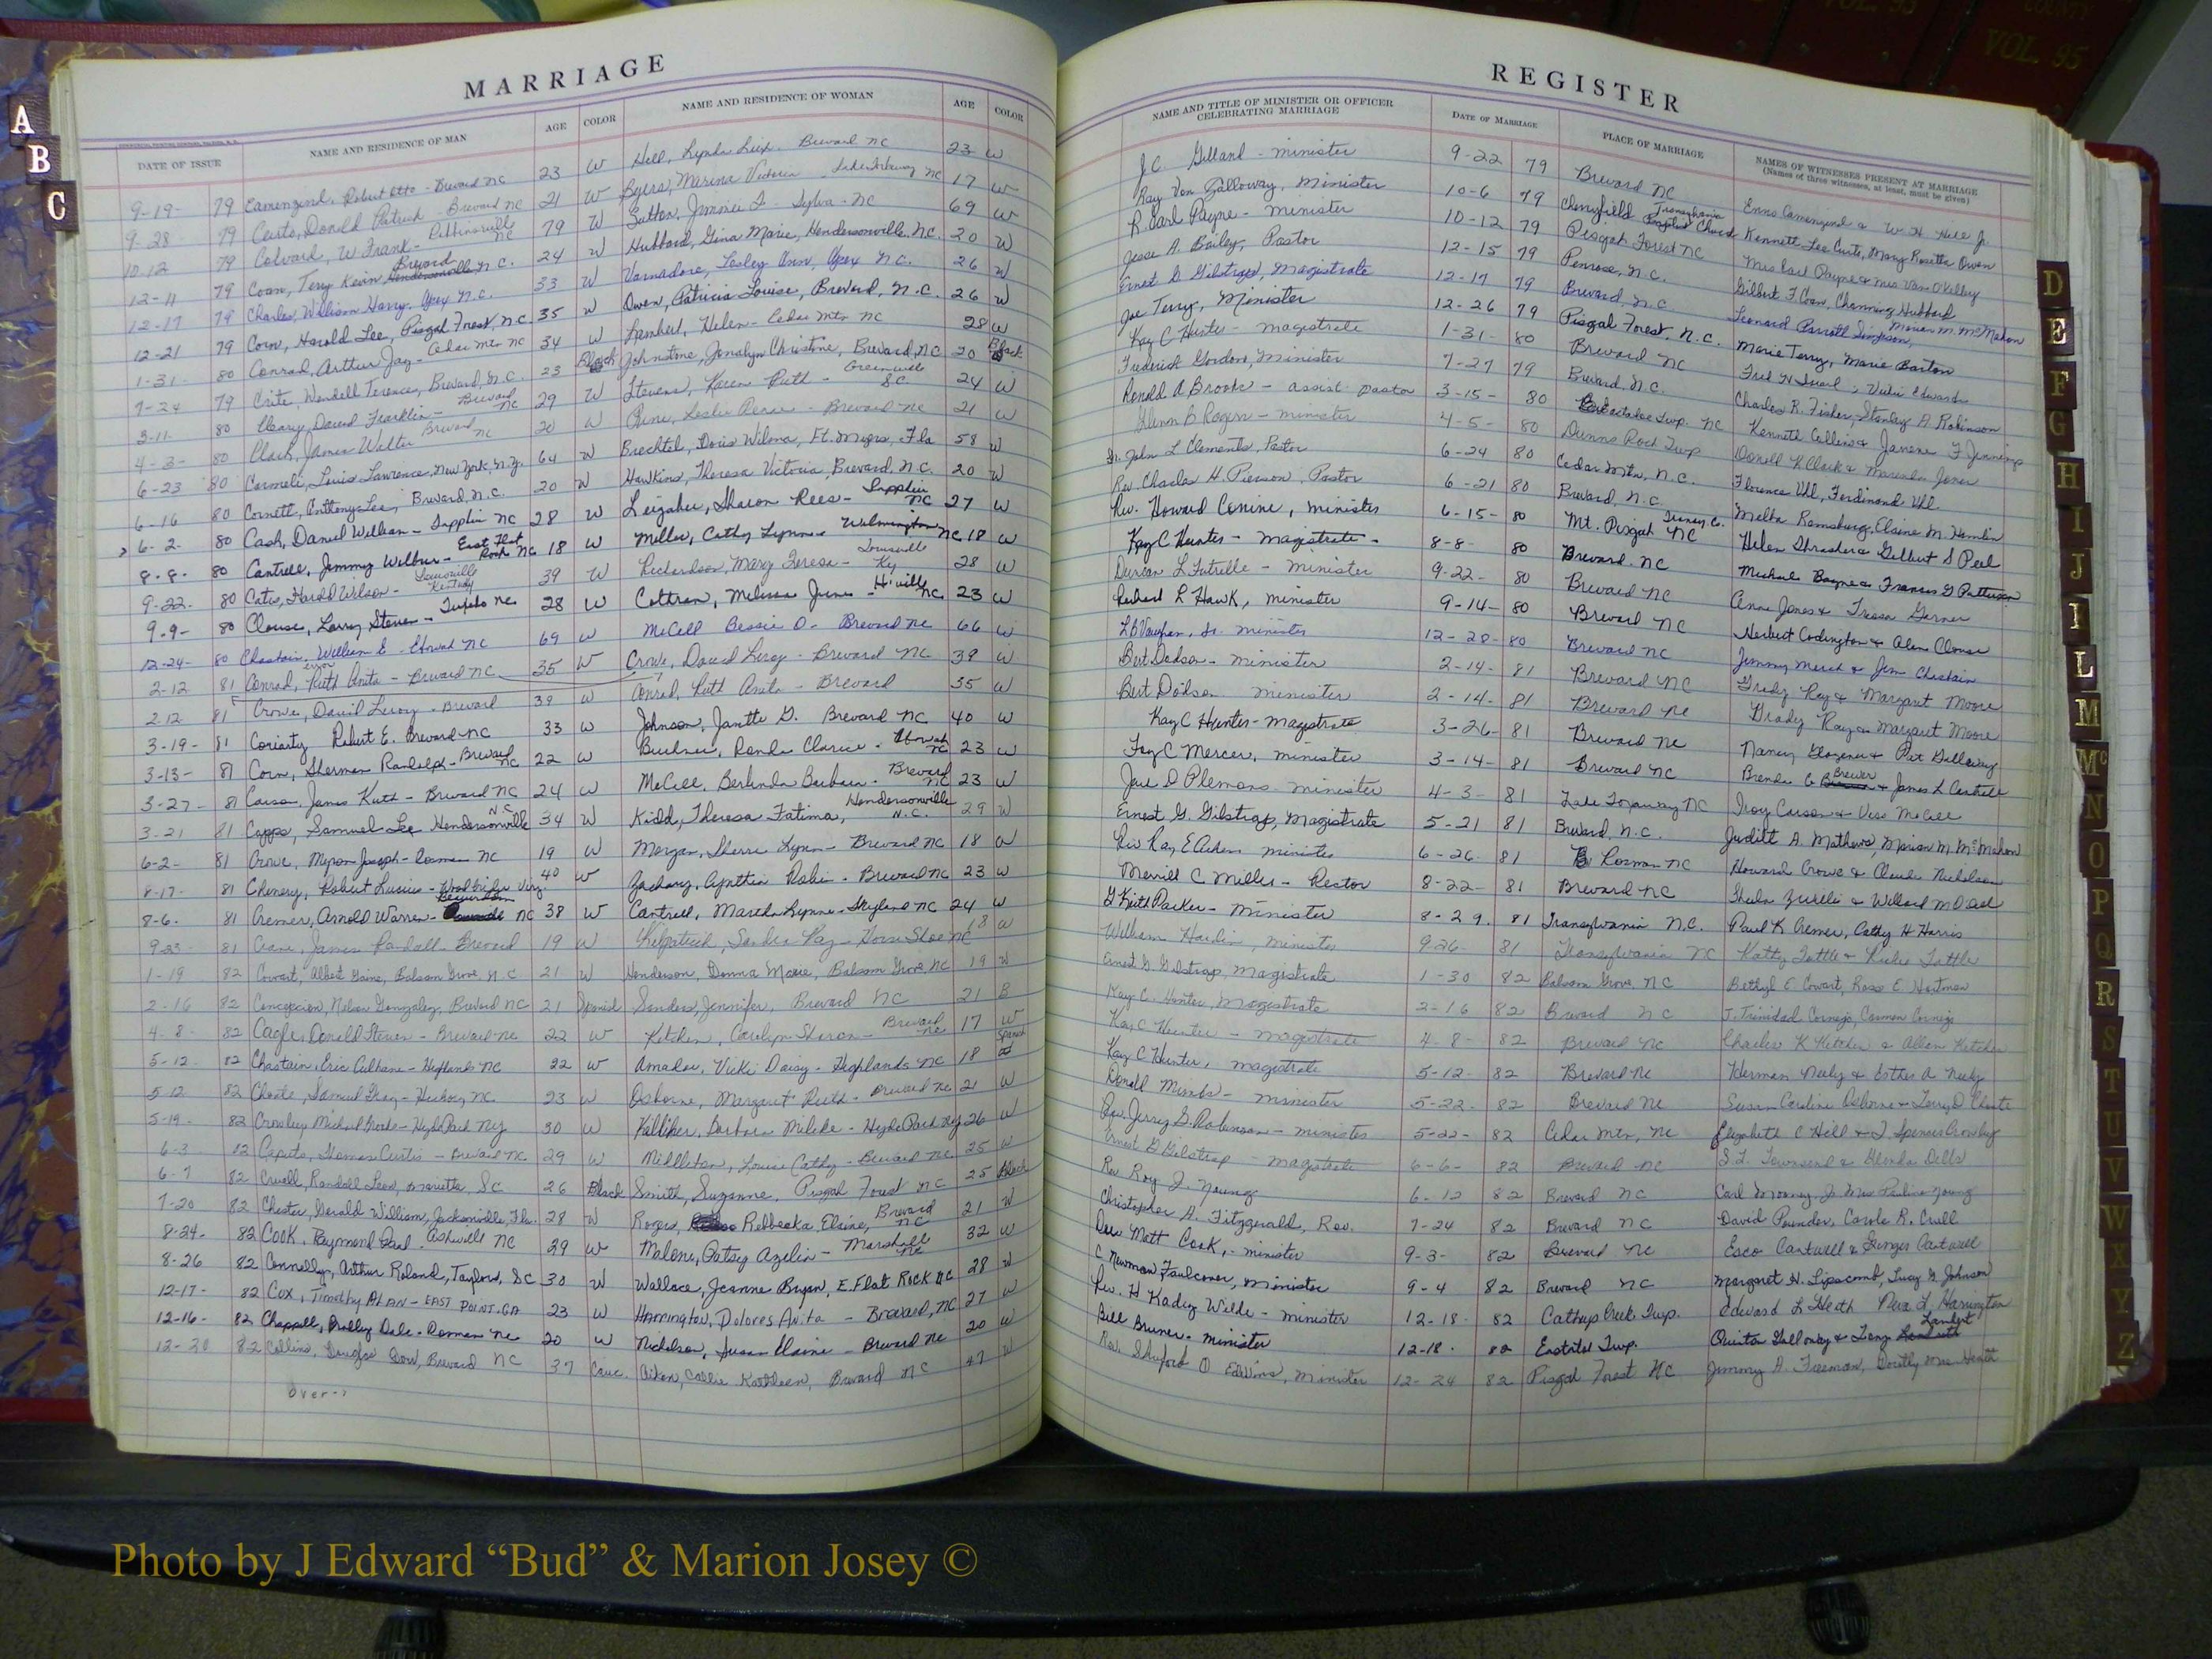 MARRIAGE
REGISTER
DATE OF ISSUE NAME AND RESIDENCE OF MAN AGE COLOR NAME AND RESIDENCE OF WOMAN AGE COLOR
NAME AND TITLE OF MINISTER OR OFFICER CELEBRATING MARRIAGE DATE OF MARRIAGE PLACE OF MARRIAGE NAMES OF WITNESSES PRESENT AT MARRIAGE
(Names of three witnesses, at least, must be given)
9-19- 79 Camenzind, Robert Otto - Brevard NC 23 W Hill, Lynda Lux - Brevard NC 23 W
9-28- 79 Curto, Donald Patrick - Brevard NC 21 W Byers, Marina Victoria - Lake Toxaway NC 17 W
10-12 79 Colvard, W. Frank - Robbinsville NC 79 W Sutton, Jimmie - Sylva - NC 69 W
12-11 79 Coan, Tery Kevin Brevard N.C. 24 W Hubbard, Gina Marie, Hendersonville, N.C. 20 W
12-17 79 Charles, William Harry, Apex N.C. 33 W Varnadore, Lesley Ann, Apex N.C. 26 W
12-21 79 Corn, Harold Lee, Pisgah Forest, N.C. 35 W Owen, Patricia Louise, Brevard, N.C. 26 W
1-31- 80 Conrad, Arthur Jay - Cedar Mtn NC 34 W Lambert, Helen - Cedar Mtn NC 28 W
7-24 79 Crite, Wendell Terence, Brevard, N.C. 23 Black Johnstone, Jonalyn Christine, Brevard, NC 20 Black
3-11- 80 Cleary, David Franklin - Brevard NC 29 W Stevens, Karen Ruth - Greenville S.C. 24 W
4-3- 80 Clark, James Walter Brevard NC 20 W Leslie - Brevard NC 21 W
6-23 80 Carmeli, Louis Lawrence, New York, N.Y. 64 W Brechtel, Doris Wilma, Ft. Myers, Fla 58 W
6-16 80 Cornett, Anthony Lee, Brevard, N.C. 20 W Hawkins, Theresa Victoria, Brevard, N.C. 20 W
6-2- 80 Cash, Daniel William - NC 28 W Sharon Rees - NC 27 W
8-8- 80 Cantrell, Jimmy Wilbur - East Flat Rock NC 18 W Miller, Cathy Lynn - Wilmington NC 18 W
9-22- 80 Cates, Harold Wilson - Louisville Kentucky 39 W Richardson, Mary Teresa - Louisville Ky 28 W
9-9- 80 Clouse, Larry Steven - Tuxedo NC 28 W Cottran, Melissa June - H'ville NC 23 W
12-24- 80 Chastain, William E - Etowah NC 69 W McCall Bessie O - Brevard NC 66 W
2-12 81 error Conrad, Ruth Anita - Brevard NC 35 W Crowe, David Leroy - Brevard NC 39 W
2-12 81 Crowe, David Leroy - Brevard 39 W Conrad, Ruth Anita - Brevard 35 W
3-19- 81 Coriarty Robert E. Brevard NC 33 W Johnson, Janette G. Brevard NC 40 W
3-13- 81 Corn, Sherman Randolph - Brevard NC 22 W Buchner, Ronda Clarice - Etowah NC 23 W
3-27- 81 Carson, James Keith - Brevard NC 24 W McCall, Berlinda Barbara - Brevard NC 23 W
3-21 81 Capps, Samuel Lee - Hendersonville N.C. 34 W Kidd, Theresa Fatima, Hendersonville N.C. 29 W
6-2- 81 Crowe, Myron Joseph - Rosman NC 19 W Morgan, Sherri Lynn - Brevard NC 18 W
8-17- 81 Chenery, Robert Lucius - Woodbridge Virg. 40 W Zachary, Cynthia Robin - Brevard NC 23 W
8-6- 81 Cremer, Arnold Warren - NC 38 W Cantrell, Martha Lynne - Skyland NC 24 W
9-23- 81 Crane, James Randall Brevard 19 W Kilpatrick, Sandra Kay - Horse Shoe NC 18 W
1-19 82 Cowart, Albert Gaine, Balsam Grove, N.C. 21 W Henderson, Donna Marie, Balsam Grove, NC 19 W
2-16 82 Concepcion, Nelson Gonzalez, Brevard NC 21 Spanish Sanders, Jennifer, Brevard NC 21 B
4-8- 82 Cagle, Donald Steven - Brevard NC 22 W Ketchen, Carolyn Sharon - Brevard NC 17 W
5-12- 82 Chastain, Eric Culhane - Highlands NC 22 W Amador, Vicki Daisy - Highlands NC 18 Spanish
5-12 82 Choate, Samuel Gray - Hickory NC 23 W Osborne, Margaret Ruth - Brevard NC 21 W
5-19- 82 Crosby, Michael Brooks - Hyde Park NY 30 W Kalliher, Barbara - Hyde Park NY 26 W
6-3 82 Caputo, Thomas Curtis - Brevard NC 29 W Middleton, Louise Cathy - Brevard NC 25 W
6-7 82 Cruell, Randall Leon, Marietta, SC 26 Black Smith, Suzanne, Pisgah Forest NC 25 Black
7-20 82 Chester, Gerald William, Jacksonville, Fla. 28 W Roger, Rebbecka Elaine, Brevard NC 21 W
8-24- 82 Cook, Raymond Paul - Asheville NC 29 W Malone, Patsy Azelia - Marshall NC 32 W
8-26 82 Connolly, Arthur Roland, Taylors, SC 30 W Wallace, Jeanne Bryan, E. Flat Rock NC 28 W
12-17- 82 Cox, Timothy Alan - East Point, GA 23 W Harrington, Dolores Anita - Brevard, NC 27 W
12-16- 82 Chappell, Bradley Dale - Rosman NC 20 W Nicholson, Susan Elaine - Brevard NC 20 W
12-20 82 Collins, Douglas Dow, Brevard NC 37 Cauc. Aiken, Callie Kathleen, Brevard NC 47 W
over->
J.C. Gilland - minister 9-22 79 Brevard NC Enno Camenzind & W H Hill Jr.
Ray Von Galloway, Minister 10-6 79 Cherryfield Baptist Church Transylvania Kenneth Lee Curto, Mary Rosetta Owen
R. Carl Payne - minister 10-12 79 Pisgah Forest NC Mrs Earl Payne & Mrs Van O'Kelley
Jesse A. Bailey, Pastor 12-15 79 Penrose, N.C. Gilbert F. Coan, Channing Hubbard
Ernest G Gilstrap, Magistrate 12-17 79 Brevard, N.C. Leonard Parrott Simpson, Marian M. McMahon
Joe Terry, Minister 12-26 79 Pisgah Forest, N.C. Marie Terry, Marie Barton
Kay C Hunter - magistrate 1-31- 80 Brevard NC Fred H Israel, Vickie Edwards
Frederick Gordon, Minister 7-27 79 Brevard, N.C. Charles R. Fisher, Stanley A Robinson
Ronald A Brooks - assist. pastor 3-15- 80 Eastatoe Twp. NC Kenneth Collins & Janene F Jennings
Glenn B Rogers - minister 4-5- 80 Dunns Rock Twp Donell K Clark & Marinda Jones
Dr. John L Clements, Pastor 6-24 80 Cedar Mtn, N.C. Florence Uhl, Ferdinand Uhl
Rev. Charles H. Pierson, Pastor 6-21 80 Brevard, N.C. Melba Ramsburg, Elaine M. Hamlin
Rev. Howard Conine, minister 6-15- 80 Mt. Pisgah NC Helen Thrasher & Gilbert S Peel
Kay C Hunter - magistrate - 8-8- 80 Brevard NC Michael Bayne & Frances G Patterson
Duncan L Futrelle - minister 9-22- 80 Brevard NC Anna Jones & Tressa Garner
Richard L Hawk, minister 9-14- 80 Brevard NC Herbert Codington & Alan Clouse
L B Vaughan, Sr. minister 12-28- 80 Brevard NC Jimmy Merck & Jim Chastain
Bert Dodson - minister 2-14- 81 Brevard NC Grady Ray & Margaret Moore
Bert Dodson minister 2-14- 81 Brevard NC Grady Ray & Margaret Moore
Kay C Hunter - magistrate 3-26- 81 Brevard NC Nancy Glazener & Pat Galloway
Foy C Mercer, minister 3-14- 81 Brevard NC Brenda G Brewer & James L Cantrell
D Plemons minister 4-3- 81 Lake Toxaway NC Troy Carson & Vess McCall
Ernest G. Gilstrap, Magistrate 5-21 81 Brevard, N.C. Judith A. Mathews, Marian M. McMahon
Rev Ray E Aiken minister 6-26- 81 Rosman NC Howard Crowe & Claude Nicholson
Merrill C Miller - Rector 8-22- 81 Brevard NC Sheila & Willard McCall
G Keith Parker - Minister 8-29- 81 Transylvania N.C. Paul K Cremer, Cathy H Harris
William Hardin, minister 9-26- 81 Transylvania NC Kathy Tuttle & Richie Tuttle
Ernest G Gilstrap, Magistrate 1-30 82 Balsam Grove, NC Bethyl E. Cowart, Rose E. Hartman
Kay C. Hunter, Magistrate 2-16 82 Brevard NC J. Trinidad Cornejo, Carmen Cornejo
Kay C Hunter - magistrate 4-8- 82 Brevard NC Charles K Ketchen & Allen Ketchen
Kay C Hunter, magistrate 5-12- 82 Brevard NC Herman Neely & Esther A Neely
Donald - minister 5-22- 82 Brevard NC Susan Caroline Osborne & Terry D Choate
Rev. Jerry G. Robinson - minister 5-22- 82 Cedar Mtn, NC Elizabeth C Hill & J. Spencer Crosby
Ernest G Gilstrap - magistrate 6-6- 82 Brevard NC S.L. Townsend & Glenda Dills
Rev Roy J. Young 6-12 82 Brevard NC Carl Mooney, Jr. Mrs Pauline Young
Christopher A. Fitzgerald, Rev. 7-24 82 Brevard NC David Pounder, Carole R. Cruell
Matt Cook, - minister 9-3- 82 Brevard NC Esco Cantwell & Ginger Cantwell
C. Newman Faulconer, Minister 9-4 82 Brevard NC Margaret H. Lipscomb, Lucy G Johnson
Rev. H Kadez Wilde - minister 12-18- 82 Catheys Creek Twp. Edward L Heath Neva L. Harrington
Bill Bruner - minister 12-18- 82 Eastatoe Twp. Quinton Galloway & Lambert
Rev. Shuford O Edwins, Minister 12-24 82 Pisgah Forest NC Jimmy A Freeman, Dorothy Mae Heath
A
B
C
D
E
F
G
H
I
J
L
M
Mc
N
O
P
Q
R
S
T
U
V
W
X
Y
Z
VOL. 95
COUNTY
VOL. 95
Photo by J Edward “Bud” & Marion Josey ©